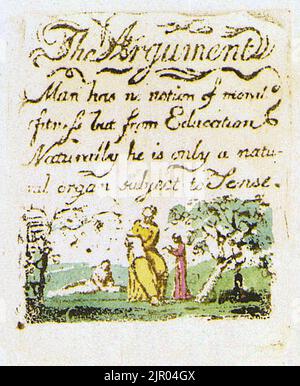 The Argument
Man has no notion of moral
fitness but from Education.
Naturally he is only a natu-
ral organ subject to Sense.
alamy
2JR04GX